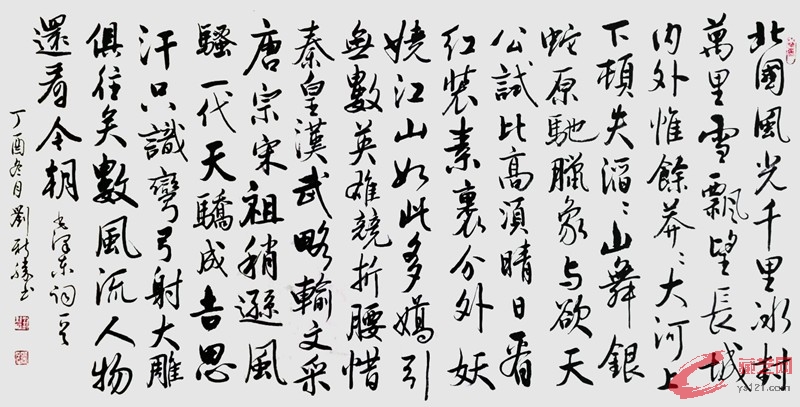 北國風光千里冰封
萬里雪飄望長城
内外惟餘莽〻大河上
下頓失滔〻山舞銀
蛇原馳臘象与欲天
公試比高須晴日看
红裝素裹分外妖
嬈江山如此多嬌引
無數英雄競折腰惜
秦皇漢武略輸文采
唐宗宋祖稍遜風
騷一代天驕成吉思
汗只識彎弓射大雕
俱往矣數風流人物
還看今朝 毛澤东词一首
丁酉冬月劉新勝书
藏艺网
ys121.com